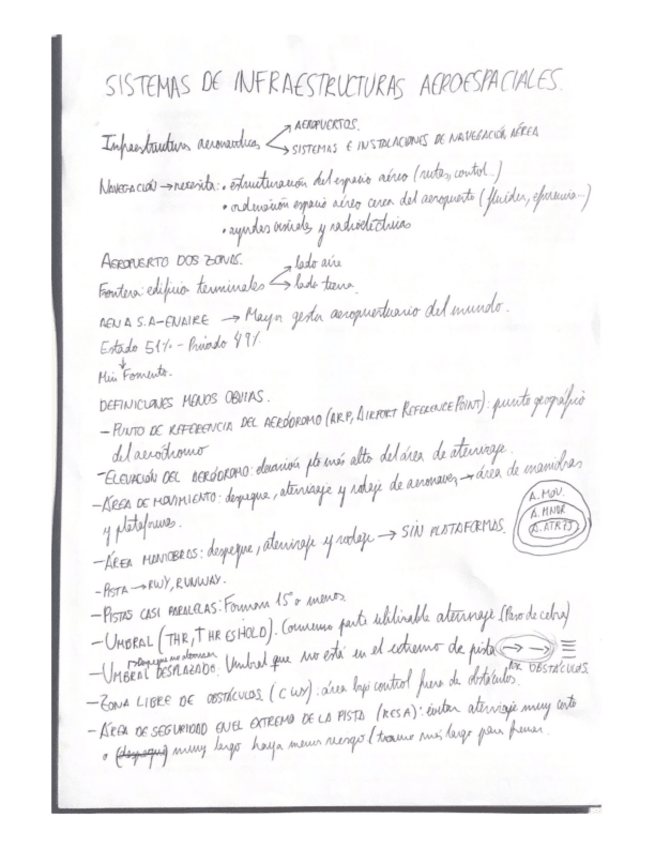 SISTEMAS DE INFRAESTRUCTURAS AEROESPACIALES.
Infraestructura aeronáutica
AEROPUERTOS.
SISTEMAS E INSTALACIONES DE NAVEGACIÓN AÉREA
NAVEGACIÓN → necesita: • estructuración del espacio aéreo (rutas, control...)
• ordenación espacio aéreo cerca del aeropuerto (fluidez, eficiencia...)
• ayudas visuales y radioeléctricas
AEROPUERTO DOS ZONAS.
lado aire
Frontera: edificio terminales
lado tierra
AENA S.A-ENAIRE → Mayor gestor aeroportuario del mundo.
Estado 51% - Privado 49%
↓
Min Fomento.
DEFINICIONES MENOS OBVIAS.
- PUNTO DE REFERENCIA DEL AERÓDROMO (ARP, AIRPORT REFERENCE POINT): punto geográfico
del aeródromo
- ELEVACIÓN DEL AERÓDROMO: elevación pto más alto del área de aterrizaje.
- ÁREA DE MOVIMIENTO: despegue, aterrizaje y rodaje de aeronaves → área de maniobras
y plataformas.
A. MOV.
A. MNBR
A. ATRZJ
- ÁREA MANIOBRAS: despegue, aterrizaje y rodaje → SIN PLATAFORMAS.
- PISTA → RWY, RUNWAY.
- PISTAS CASI PARALELAS: Forman 15° o menos.
- UMBRAL (THR, THRESHOLD). Comienzo parte utilizable aterrizaje (Paso de cebra)
- UMBRAL DESPLAZADO: Umbral que no está en el extremo de pista → →
OBSTÁCULOS.
- ZONA LIBRE DE OBSTÁCULOS (CWY): área bajo control fuera de obstáculos.
- ÁREA DE SEGURIDAD EN EL EXTREMO DE LA PISTA (RESA): evitar aterrizaje muy corto
o (despegue) muy largo haya menor riesgo (tramo más largo para frenar.